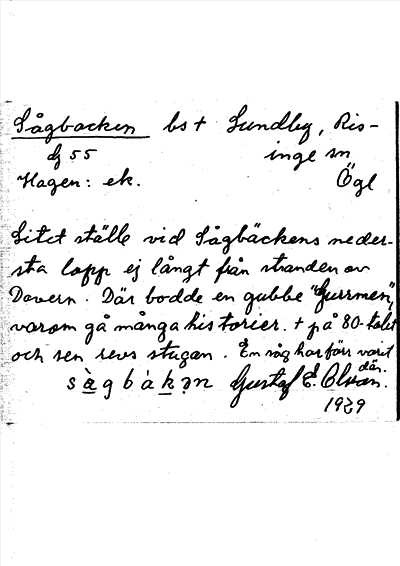 Sågbacken bs + Lundby, Ris-
dj 55 inge sn
Hagen: ek. Ögl
Litet ställe vid Sågbäckens neder-
sta lopp ej långt från stranden av
Dovern. Där bodde en gubbe "Gurrmen",
varom gå många historier. + på 80-talet
och sen revs stugan. En såg har förr varit
där.
sàgbàkən Gustaf E. Olson.
1929